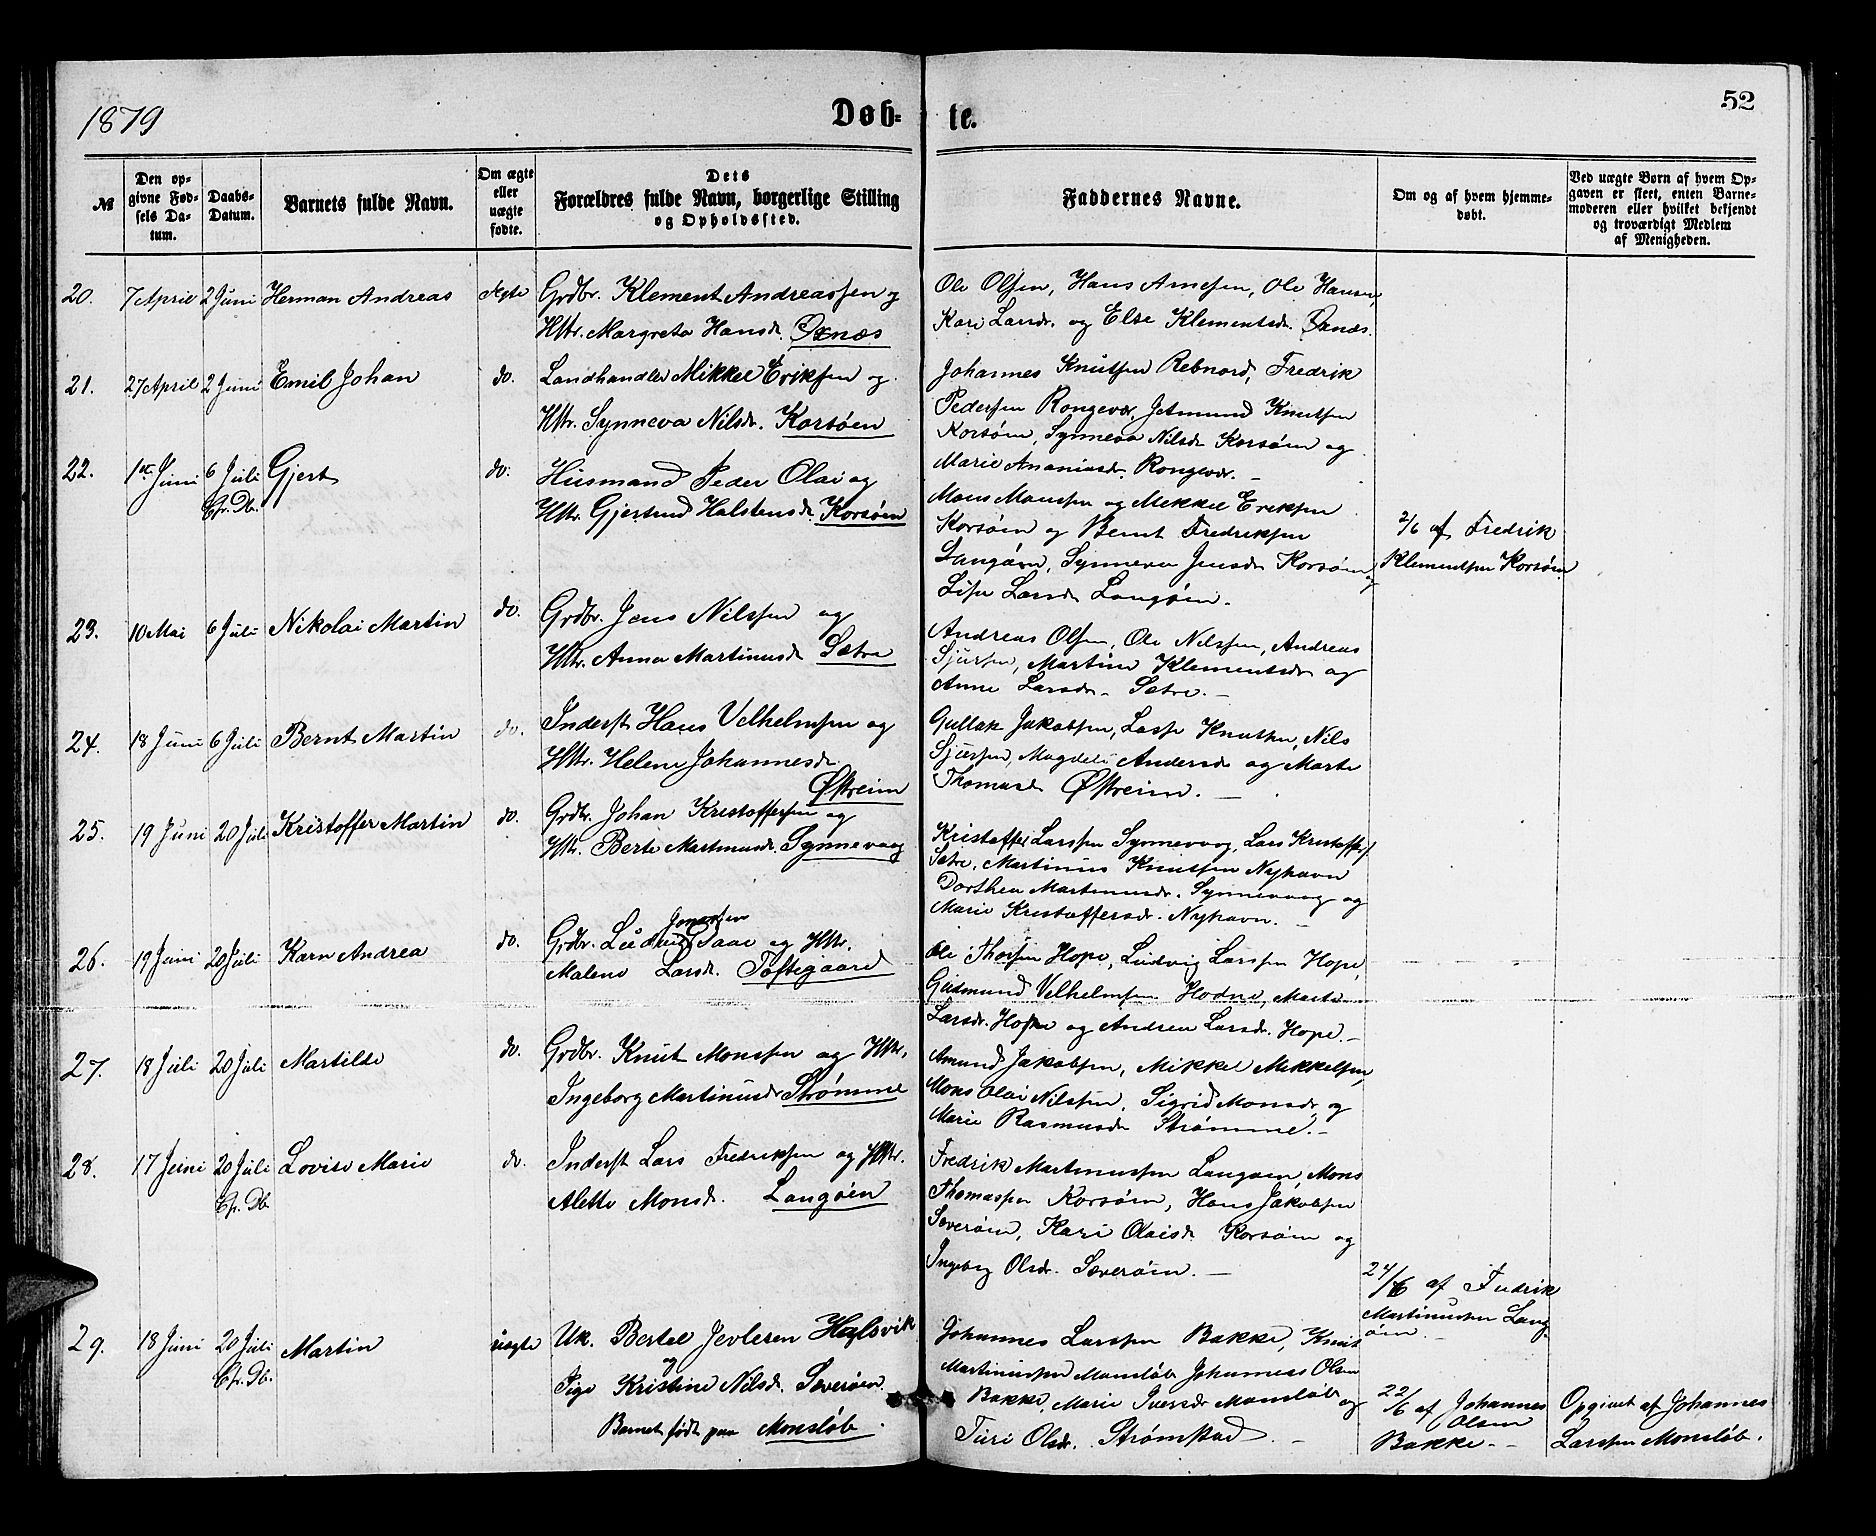 1879
Døb-
te.
52
№
Den op-
givne Fød-
sels Da-
tum.
Daabs-
Datum.
Barnets fulde Navn.
Om ægte
eller
uægte
fødte.
Dets
Forældres fulde Navn, borgerlige Stilling
og Opholdssted.
Faddernes Navne.
Om og af hvem hjemme-
døbt.
Ved uægte Børn af hvem Op-
gaven er skeet, enten Barne-
moderen eller hvilket bekjendt
og troværdigt Medlem
af Menigheden.
20. 7 April 2 Juni Herman Andreas Ægte Grdbr. Klement Andreassen og
Hstr. Margreta Hansd. Øxnæs
Ole Olsen, Hans Arnesen, Ole Hansen,
Kari Larsdr. og Else Klementsdr. Øxnæs.
21. 27 April 2 Juni Emil Johan do. Landhandler Mikkel Eriksen og
Hstr. Synneva Nilsdr. Korsøen
Johannes Knutsen Rebnord, Fredrik
Pedersen Rongevær, Jetmund Knutsen
Korsøen, Synneva Nilsdr Korsøen og
Marie Ananiasdr. Rongevær.
22. 1ste Juni 6 Juli Gjert do. Husmand Peder Olai og
Hstr. Gjertrud Halstensdr. Korsøen
Mons Monsen og Mikkel Eriksen
Korsøen og Bernt Fredriksen
Langøen, Synneva Jensdr Korsøen og
Lisa Larsdr Langøen.
2/6 af Fredrik
Klementsen Korsøen
23. 10 Mai 6 Juli Nikolai Martin do. Grdbr. Jens Nilssen og
Hstr. Anna Martinusdr Sætre
Andreas Olsen, Ole Nilssen, Andreas
Sjursen, Martine Klementsdr og
Anne Larsdr. Sætre.
24. 18 Juni 6 Juli Bernt Martin do. Inderst Hans Velhelmsen og
Hstr. Helene Johannesdr
Østreim
Gullak Jakobsen, Lasse Knutsen, Nils
Sjursen, Magdeli Andersdr og Marte
Thomasdr Østreim.
25. 19 Juni 20 Juli Kristoffer Martin do. Grdbr. Johan Kristoffersen og
Hstr. Berte Martinusdr. Synnevaag
Kristoffer Larssen Synnevaag, Lars Kristoffers.
Sætre, Martinus Knutsen Nyhavn
Dorthea Martinusdr. Synnevaag og
Marie Kristoffersdr. Nyhavn.
26. 19 Juni 20 Juli Karn Andrea do. Grdbr. Ludvig Isac og Hstr.
Malene Larsdr. Toftegaard
Ole Thorsen Hope, Ludvig Larssen Hope,
Gudmund Velhelmsen Hodne, Marta
Larsdr. Hope og Andrea Larsdr. Hope.
27. 18 Juli 20 Juli Martilde do. Grdbr. Knut Monssen og Hstr.
Ingeborg Martinusdr Strømme
Amund Jakobsen, Mikkel Mikkelsen,
Mons Olai Nilssen, Sigrid Monsdr. og
Marie Rasmusdr Strømme.
28. 17 Juni 20 Juli Lovise Marie do. Inderst Lars Fredriksen og Hstr.
Alette Monsdr. Langøen
Fredrik Martinussen Langøen, Mons
Thomassen Korsøen, Hans Jakobsen
Sæverøen, Kari Olaisdr. Korsøen og
Ingeborg Olsdr. Sæverøen.
24/6 af Fredrik
Martinussen Lang-
øen.
29. 18 Juni 20 Juli Martin uægte Uk. Bertel Jevlesen Halsvik
og
Pige Kristine Nilsdr. Sæverøen.
Barnet født paa Monsløb.
Johannes Larssen Bakke, Knut
Martinussen Monsløb, Johannes Olsen
Bakke, Marie Iversdr Monsløb og
Turi Olsdr. Strømstad
22/6 af Johannes
Olsen
Bakke.
Opgivet af Johannes
Larssen Monsløb.